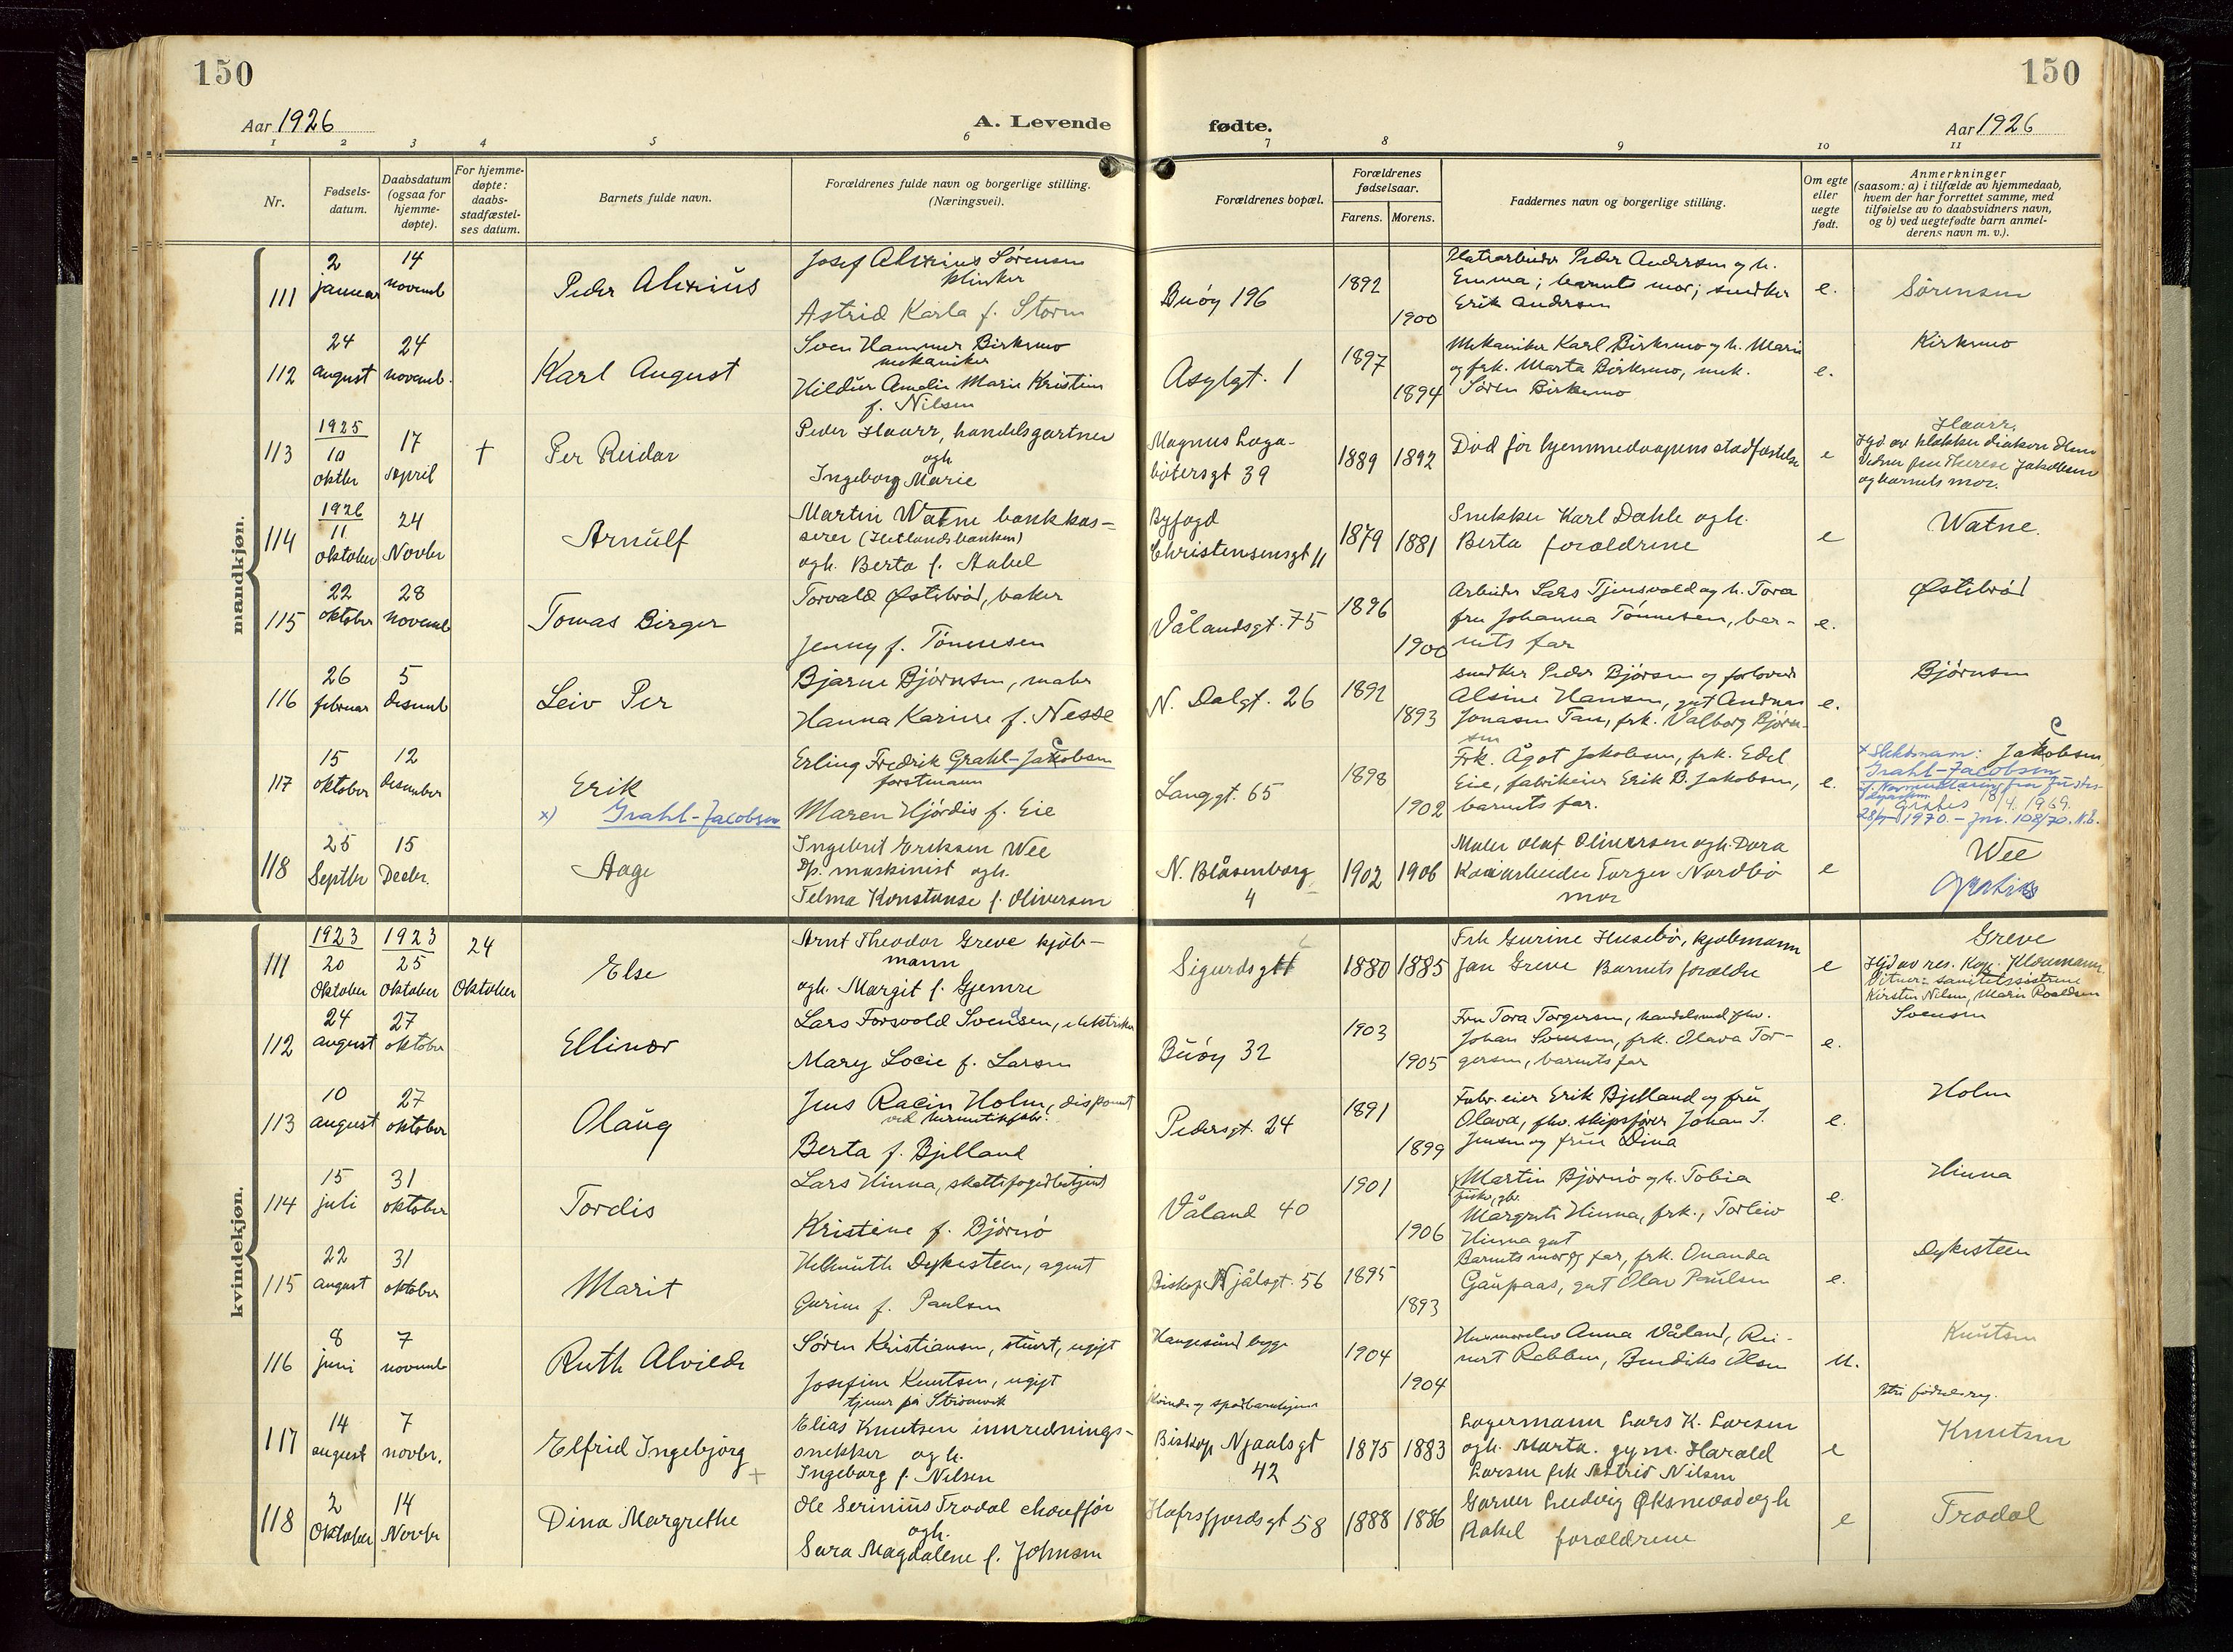 150
150
Aar 1926
A. Levende
fødte.
Aar 1926
1 2 3 4 5 6 7 8 9 10 11
Nr.
Fødsels-
datum.
Daabsdatum
(ogsaa for
hjemme-
døpte).
For hjemme-
døpte:
daabs-
stadfæstel-
ses datum.
Barnets fulde navn.
Forældrenes fulde navn og borgerlige stilling.
(Næringsvei).
Forældrenes bopæl.
Forældrenes
fødselsaar.
Farens. Morens.
Faddernes navn og borgerlige stilling.
Om egte
eller
uegte
født.
Anmerkninger
(saasom: a) i tilfælde av hjemmedaab,
hvem der har forrettet samme, med
tilføielse av to daabsvidners navn,
og b) ved uegtefødte barn anmel-
derens navn m. v.).
mandkjøn.
111
2
januar
14
novemb
Peder Alexius
Josef Alexius Sörensen
klinker
Astrid Karla f. Storm
Buöy 196
1892
1900
Peder Andersen og h.
Emma; barnets mor; snedker
Erik Andersen
e.
Sörensen
112
24
august
24
novemb.
Karl August
Sven Hammer Birkemo
mekaniker
Hildur Amalie Marie Kristine
f. Nilsen
Asylgt. 1
1897
1894
Mekaniker Karl Birkemo og h. Marie
og frk. Marta Birkemo, mek.
Sören Birkemo
e.
Birkemo
113
1925
10
oktbr
17
april
†
Per Reidar
Peder Haarr, handelsgartner
ogh
Ingeborg Marie
Magnus Laga-
bötersgt 39
1889
1892
Död för hjemmedaapens stadfæstelse
e
Haarr.
Hjd av klokker diakon
Vidner fru Therese Jakobsen
og barnets mor.
114
1926
11
oktober
24
Novbr
Arnulf
Martin Watne bankkas-
serer (Hetlandsbanken)
ogh. Berta f. Aabel
Byfogd
Christensensgt 11
1879
1881
Snekker Karl Dahle ogh.
Berta forældrene
e
Watne.
115
22
oktober
28
novemb
Tomas Birger
Torvald Østebrød, baker
Jenny f. Tönnesen
Vålandsgt. 75
1896
1900
Arbeider Lars Tjensvold og h. Tora
fru Johanna Tönnesen, bar-
nets far
e.
Østebrød
116
26
februar
5
desemb
Leiv Per
Bjarne Björnsen, maler
Hanna Karine f. Nesse
N. Dalgt. 26
1892
1893
snedker Peder Björsen og forlovede
Alsine Hansen, gut Andreas
Jonasen Tau, frk. Valborg Björn-
sen
e.
Björnsen
117
15
oktober
12
desember
Erik
x) Grahl-Jacobsen
Erling Fredrik Grahl-Jakobsen
c
forstmann
Maren Hjördis f. Eie
Langgt. 65
1898
1902
Frk. Ågot Jakobsen, frk. Edel
Eie, fabrikeier Erik B. Jakobsen,
barnets far.
e.
c
x Slektsnavn: Jakobsen
Grahl-Jacobsen
18/4. 1969.
1970. - Jnr. 108/70. K.B.
118
25
Septbr
15
Decbr.
Aage
Ingebret Eriksen Wee
Dp. maskinist ogh.
Telma Konstanse f. Oliversen
N. Blåsenborg
4
1902
1906
Maler Olaf Oliversen ogh. Dora
Kaiarbeider Torger Nordbö
mor
e
Wee
Gratis
kvindekjøn.
111
1923
20
Oktober
1923
25
Oktober
24
Oktober
Else
Arnt Theodor Greve kjöb-
mann
ogh. Margit f. Gjemre
Sigurdsgt
1880
1885
Frk Gurine Husebö, kjøbmann
Jan Greve Barnets forældre
e
Greve
Hjd av res. Kap. Kloumann.
Vitner: sanitetssöstrene
Kirsten Nilsen, Marie Roaldsen
112
24
august
27
oktober
Ellinor
Lars Torsvold Svendsen, elektriker
Mary Locie f. Larsen
Buöy 32
1903
1905
Fru Tora Torgersen, handelsmd fhv.
Johan Svensen, frk. Olava Tor-
gersen, barnets far
e.
Svensen
113
10
august
27
oktober
Olaug
Jens Racin Holm, disponent
ved hermetikfabr.
Berta f. Bjelland
Pedersgt. 24
1891
1899
Fabr. eier Erik Bjelland og frue
Olava, fhv. skipsfører Johan I.
Jensen og frue Dina
e.
Holm
114
15
juli
31
oktober
Tordis
Lars Hinna, skattefogedbetjent
Kristine f. Björnö
Våland 40
1901
1906
Martin Björnö og h. Tobia
fisker, gbr.
Margrete Hinna, frk., Torleiv
Hinna gut
e.
Hinna
115
22
august
31
oktober
Marit
Helmuth Dykesteen, agent
Gurine f. Paulsen
Biskop Njålsgt. 56
1895
1893
Barnets mor og far, frk. Onanda
Gaupaas, gut Olav Paulsen
e.
Dykesteen
116
8
juni
7
novemb
Ruth Alvilde
Sören Kristiansen, stuert, ugift
Josefine Knutsen, ugift
tjener på Strömvik
Haugesund begge
1904
1904
Husmoder Anna Våland, Rei-
nert Rabben, Bendiks Olsen
u.
Knutsen
117
14
august
7
novbr.
Elfrid Ingebjörg
Elias Knutsen innrednings-
snekker og h.
Ingeborg f. Nilsen
Biskop Njaalsgt
42
1875
1883
Lagermann Lars K. Larsen
ogh. Marta. gym. Harald
Larsen frk Astrid Nilsen
e
Knutsen
118
2
Oktober
14
Novbr
Dina Margrethe
Ole Serinius Trodal chauffør
ogh.
Sara Magdalene f. Johnsen
Hafrsfjordsgt 58
1888
1886
Garver Ludvig Øksnevad ogh
Rakel forældrene
e
Trodal